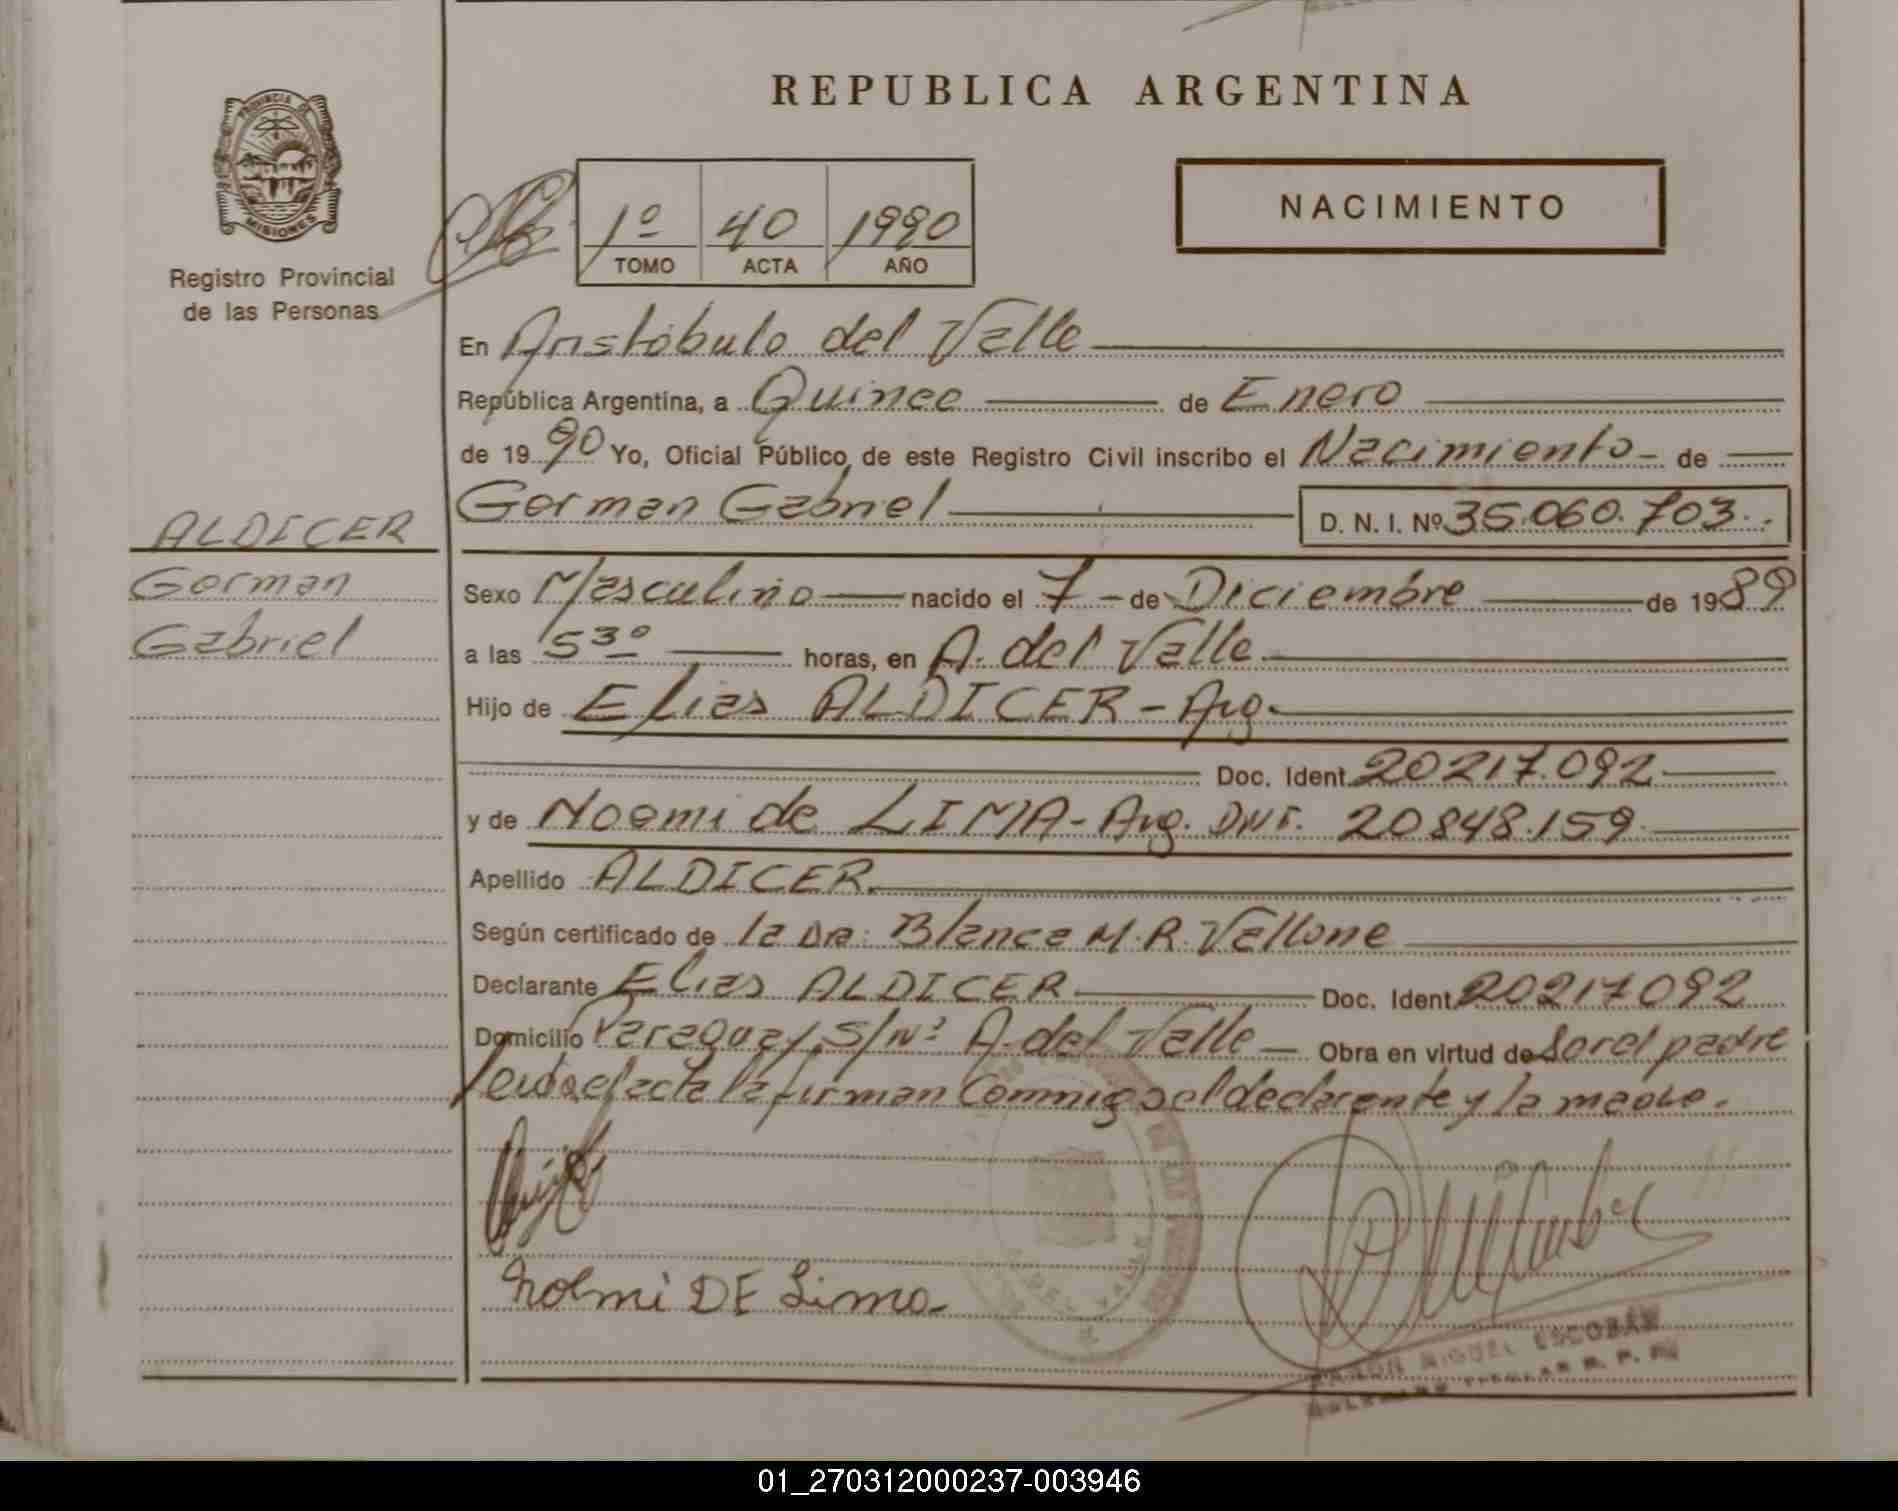 REPUBLICA ARGENTINA
PROVINCIA DE
MISIONES
Registro Provincial
de las Personas
1º 40 1990
TOMO ACTA AÑO
NACIMIENTO
En Aristóbulo del Valle
República Argentina, a Quince de Enero
de 1990 Yo, Oficial Público de este Registro Civil inscribo el Nacimiento - de
German Gabriel D. N. I. Nº 35.060.703.
ALDICER
German
Gabriel
Sexo Masculino nacido el 7 - de Diciembre de 1989
a las 5 3º horas, en A. del Valle
Hijo de Elias ALDICER - Arg.
Doc. Ident. 20217.092
y de Noemi de LIMA - Arg. DNI. 20848.159
Apellido ALDICER
Según certificado de la Dra: Blanca M. R. Vallone
Declarante Elias ALDICER Doc. Ident. 20217092
Domicilio Paraguay S/Nº A. del Valle - Obra en virtud de Ser el padre
Leída el acta la firman Conmigo el declarante y la madre.
Noemi DE Lima
RAMON MIGUEL ESCOBAR
TITULAR R. P.
01_270312000237-003946